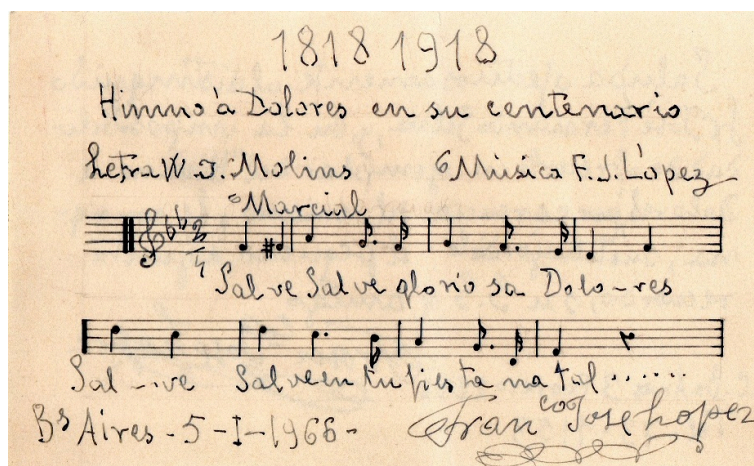 1818 1918
Himno à Dolores en su centenario
Letra W. J. Molins Música F. J. López
Marcial
2/4
Salve Salve glorio sa Dolo-res
Sal--ve Salve en tu fiesta na tal......
Bs Aires-5-I-1966-
Franco Jose Lopez